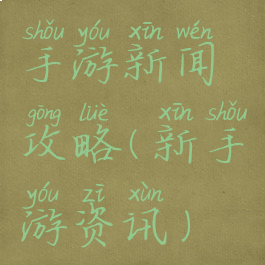 shǒu yóu xīn wén
手游新闻
gōng lüè xīn shǒu
攻略(新手
yóu zī xùn
游资讯)